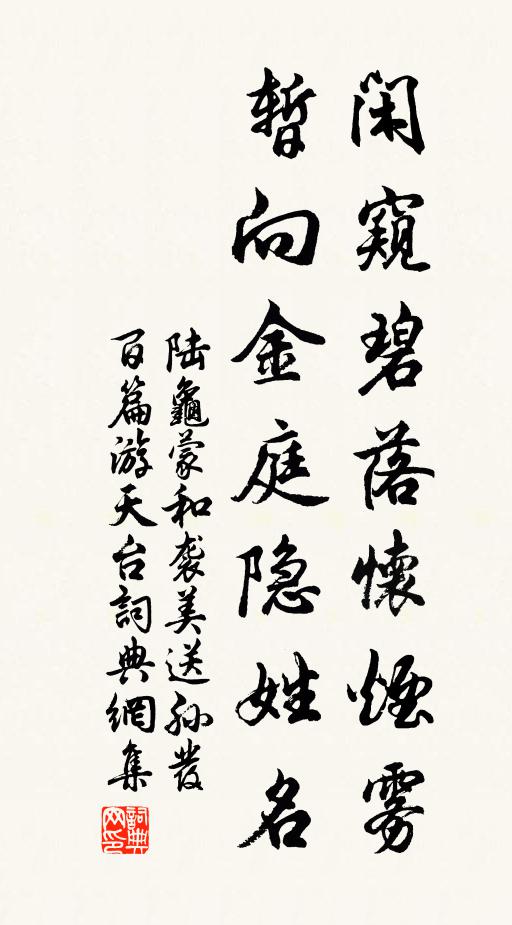 闲窥碧落懷煙雾
暫向金庭隐姓名
陆龜蒙和袭美送孙發
百篇游天台詞典網集
詞典网印